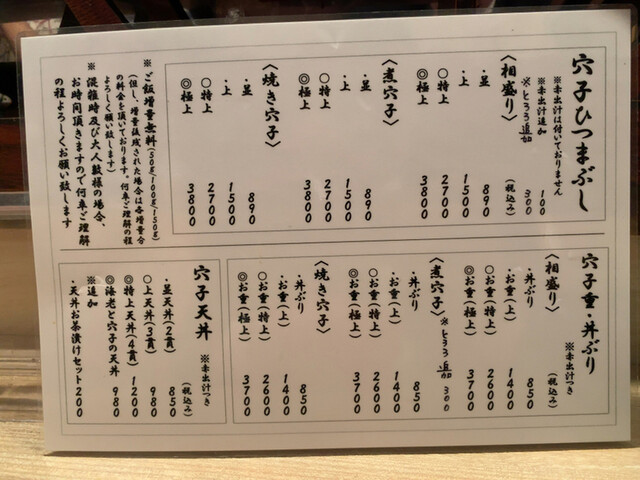 穴子ひつまぶし
※赤出汁は付いておりません
※赤出汁追加 100
※とろろ追加 300
〈相盛り〉 (税込み)
・並 890
・上 1500
○特上 2700
◎極上 3800
〈煮穴子〉
・並 890
・上 1500
○特上 2700
◎極上 3800
〈焼き穴子〉
・並 890
・上 1500
○特上 2700
◎極上 3800
※ご飯増量無料(50g、100g、150g)
(但し、増量後残された場合は各増量分
の料金を頂いております。何卒ご理解の程
よろしくお願い致します)
※混雑時及び大人数様の場合、
お時間頂きますので何卒ご理解
の程よろしくお願い致します
穴子重・丼ぶり
※赤出汁つき
〈相盛り〉 (税込み)
・丼ぶり 850
・お重(上) 1400
○お重(特上) 2600
◎お重(極上) 3700
〈煮穴子〉 ※とろろ追加 300
・丼ぶり 850
・お重(上) 1400
○お重(特上) 2600
◎お重(極上) 3700
〈焼き穴子〉
・丼ぶり 850
・お重(上) 1400
○お重(特上) 2600
◎お重(極上) 3700
穴子天丼 ※赤出汁つき
(税込み)
・並天丼(2貫) 850
○上天丼(3貫) 980
◎特上天丼(4貫) 1200
◎海老と穴子の天丼 980
※追加
・天丼お茶漬けセット 200